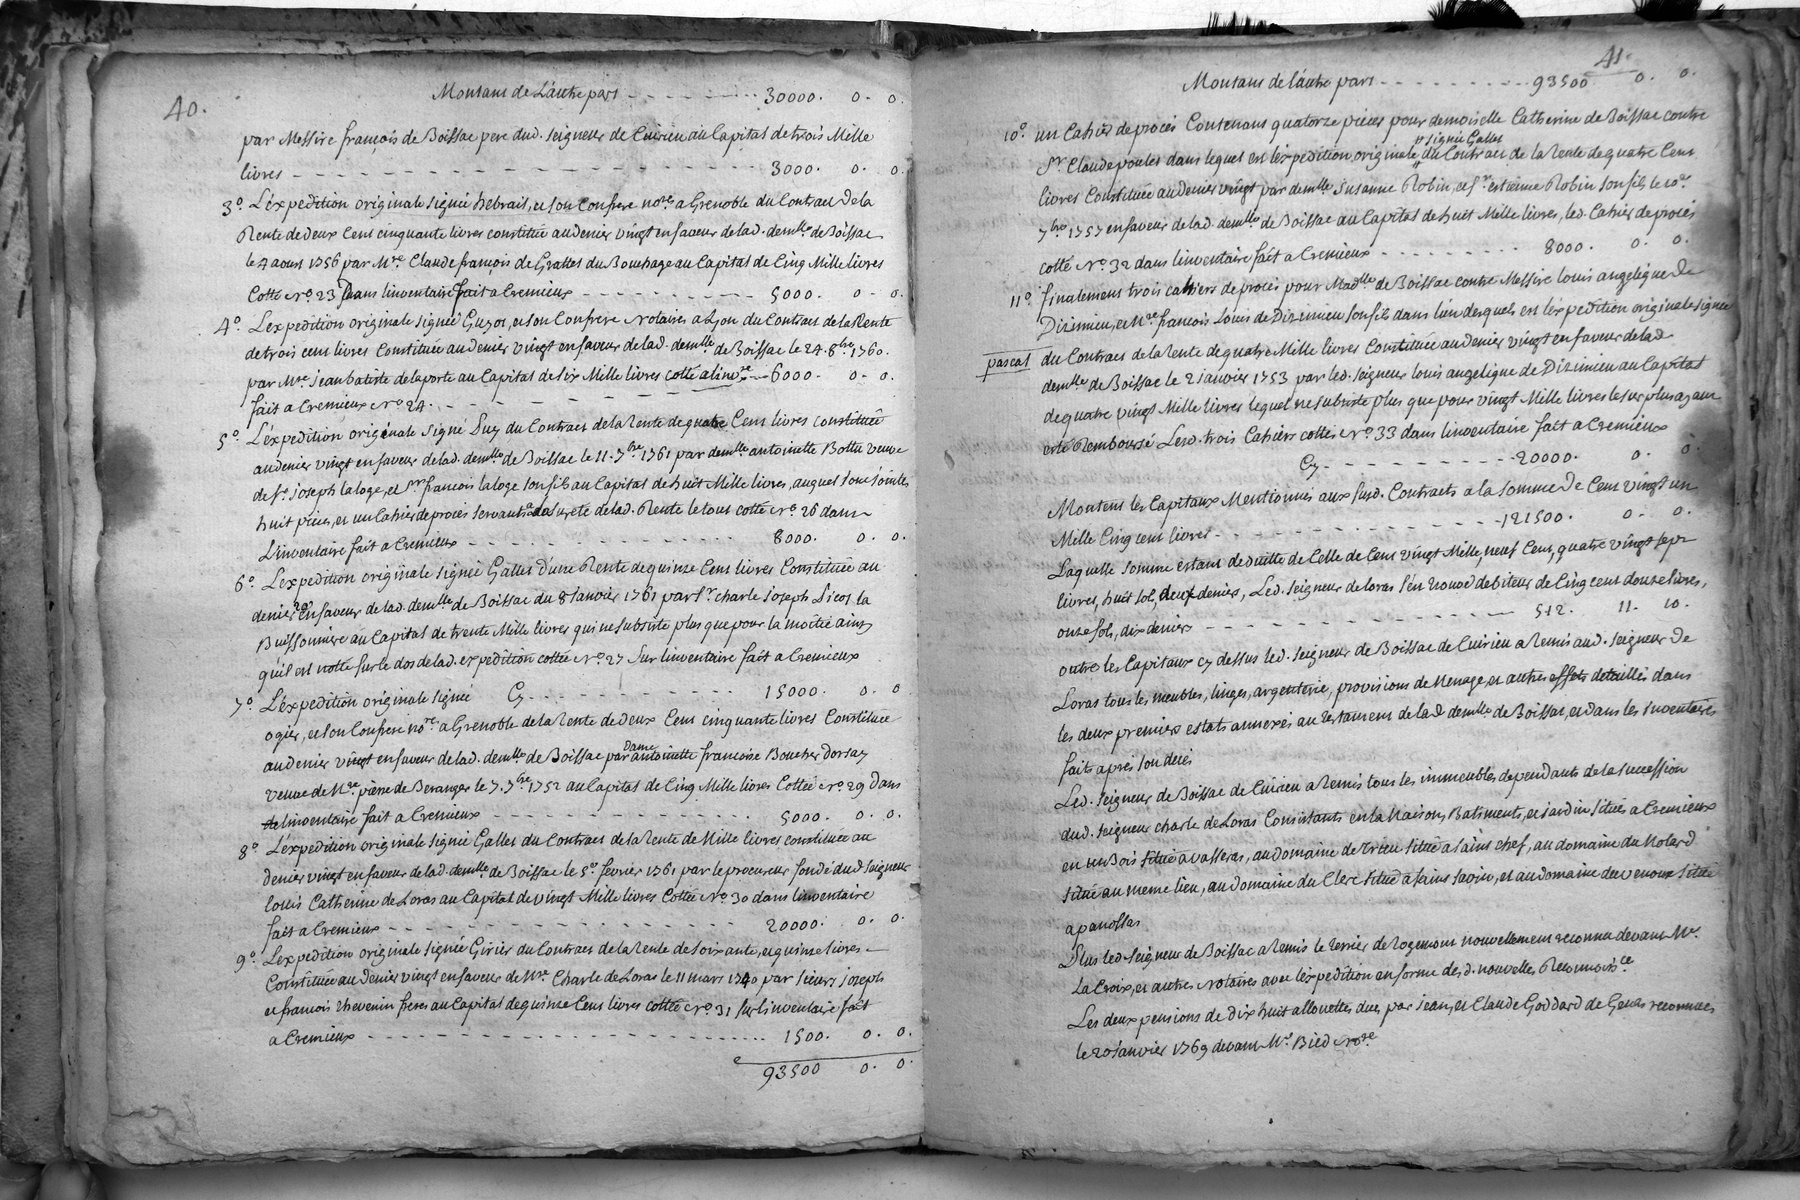 40.
Montant de L'autre part - - - - - - - - 30000. 0. 0.
par Messire françois de Boissac pere dud. seigneur de Cuirieu au Capital de trois Mille
livres - - - - - - - - - - - - - - 3000. 0. 0.
3º. L'éxpedition originale signée hebrail, et son Confrere nore. a Grenoble du Contract de la
Rente de deux Cent cinquante livres constituée au denier vingt en faveur de lad. demlle. de Boissac
le 4 aoust 1756 par Mre. Claude françois de Grattet du Bouchage au Capital de Cinq Mille livres
Cotté No. 23 dans l'inventaire fait a Cremieux - - - - - - - 5000. 0. 0.
4º. L'expedition originale signée Guyot, et son Confrere Notaires a Lyon du Contract de la Rente
de trois cent livres Constituée au denier vingt en faveur de lad. demlle. de Boissac le 24. 8bre. 1760.
par Mre. jean batiste de laporte au Capital de six Mille livres cotté a linvre. - - 6000. 0. 0.
fait a Cremieux No. 24. - - - - - - -
5º. L'éxpedition originale signé Duy du Contract de la rente de quatre Cent livres constituée
au denier vingt en faveur de lad. demlle. de Boissac le 11. 7bre. 1761 par demlle antoinette Bottu veuve
de Sr. joseph laloge, et Sr. françois laloge son fils au Capital de huit Mille livres, auquel sont jointes
huit pieces, et un Cahier de procés servant a la sureté de lad. Rente le tout cotté No. 26 dans
L'inventaire fait a Cremieux - - - - - - - - - - 8000. 0. 0.
6º. L'expedition originale signée Gallet d'une Rente de quinze Cent livres Constituée au
denier 20 en faveur de lad. demlle. de Boissac du 8 janvier 1761 par Sr. charle joseph la
Buissonniere au Capital de trente Mille livres qui ne subsiste plus que pour la moitié ainsy
qu'il est notté sur le dos de lad. expedition cottée No. 27 sur linventaire fait a Cremieux
Cy - - - - - - - - 15000. 0. 0
7º. L'éxpedition originale signée
ogier, et son Confrere nore. a Grenoble de la Rente de deux Cent cinquante livres Constituée
au denier vingt en faveur de lad. demlle. de Boissac par Dame antoinette françoise Boucher dorsay
veuve de Mre. pierre de Beranger le 7. 7bre. 1752 au Capital de Cinq Mille livres Cottée No. 29 dans
linventaire fait a Cremieux - - - - - - - - - 5000. 0. 0.
8º. L'éxpedition originale signée Gallet du Contract de la Rente de Mille livres constituée au
denier vingt en faveur de lad. demlle. de Boissac le 5e. fevrier 1761 par le procureur fondé dud. seigneur
louis Catherine de Loras au Capital de vingt Mille livres Cottée No. 30 dans linventaire
fait a Cremieux - - - - - - - - - - - 20000. 0. 0.
9º. L'expedition originale signée Girier du Contract de la Rente de soixante, et quinze livres
Constituée au denier vingt en faveur de Mre. Charle de Loras le 11 mars 1740 par sieurs joseph
et françois thevenin freres au Capital de quinze Cent livres cottée No. 31 sur l'inventaire fait
a Cremieux - - - - - - - - - - - 1500. 0. 0.
93500 0. 0.
41.
Montant de l'autre part - - - - - - - - 93500 0. 0.
10º. un Cahier de procés Contenant quatorze pieces pour demoiselle Catherine de Boissac contre
signée Gallet
Sr. Claude poulet dans lequel est l'éxpedition originale du Contract de la Rente de quatre Cent
livres Constituée au denier vingt par demlle. Susanne Robin, et Sr. estienne Robin son fils le 10e.
7bre. 1757 en faveur de lad. demlle. de Boissac au Capital de huit Mille livres, led. Cahier de procés
cotté No. 32 dans linventaire fait a Cremieux - - - - - - 8000. 0. 0.
11º. finalement trois cahiers de procés pour Madlle. de Boissac contre Messire louis angelique de
Disimieu, et Mre. françois Louis de Disimieu son fils dans l'un desquels est l'éxpedition originale signée
pascal du Contract de la Rente de quatre Mille livres Constituée au denier vingt en faveur de lad.
demlle. de Boissac le 2 janvier 1753 par led. seigneur louis angelique de Disimieu au Capital
de quatre vingt Mille livres lequel ne subsiste plus que pour vingt Mille livres le surplus ayant
esté Remboursé Lesd. trois Cahiers cottés No. 33 dans linventaire fait a Cremieux
Cy - - - - - - - - - 20000. 0. 0.
Montent les Capitaux Mentionnés aux susd. Contracts a la somme de Cent vingt un
Mille Cinq cent livres - - - - - - - - - - - 121500. 0. 0.
Laquelle somme estant deduitte de Celle de Cent vingt Mille, neuf Cent, quatre vingt sept
livres, huit sol, deux deniers, Led. seigneur de loras s'en trouve debiteur de Cinq cent douze livres,
onze sols, dix deniers - - - - - - - - - - 512. 11. 10.
outre les Capitaux cy dessus led. seigneur de Boissac de Cuirieu a Remis aud. seigneur de
Loras tous les meubles, linges, argenterie, provisions de Menage, et autres effets detaillés dans
les deux premiers estats annexés au testament de lad. demlle. de Boissac, et dans les inventaires
faits apres son decés
Led. seigneur de Boissac de Cuirieu a Remis tous les immeubles dependants de la succession
dud. seigneur charle de Loras Consistants en la Maison, Batiments, et jardin situés a Cremieux
en un Bois situé a vasseras, au domaine de Trieu situé a saint chef, au domaine du Molard
situé au meme lieu, au domaine du Clerc situé a saint savin, et au domaine de venoux situé
a panossas
Plus led. seigneur de Boissac a Remis le terrier de rogemont nouvellement reconnu devant Me.
La Croix, et autres Notaires avec l'éxpedition en forme desd. nouvelles Reconnoisce.
Les deux pensions de dix huit allouettes dues par jean, et Claude Goddard de Genas reconnues
le 20 janvier 1769 devant Me. Bied Nore.